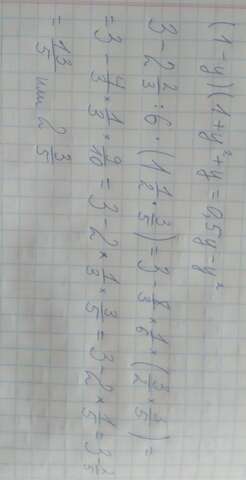 (1-y)(1+y²+y=0,5y-yˣ
3-2 2/3 : 6 · (1 1/2 · 3/5) = 3 - 8/3 × 1/6 × (3/2 × 3/5) =
= 3 - 4/3 × 1/3 × 9/10 = 3 - 2 × 1/3 × 3/5 = 3 - 2 × 1/5 = 3 2/5
= 13/5 или 2 3/5